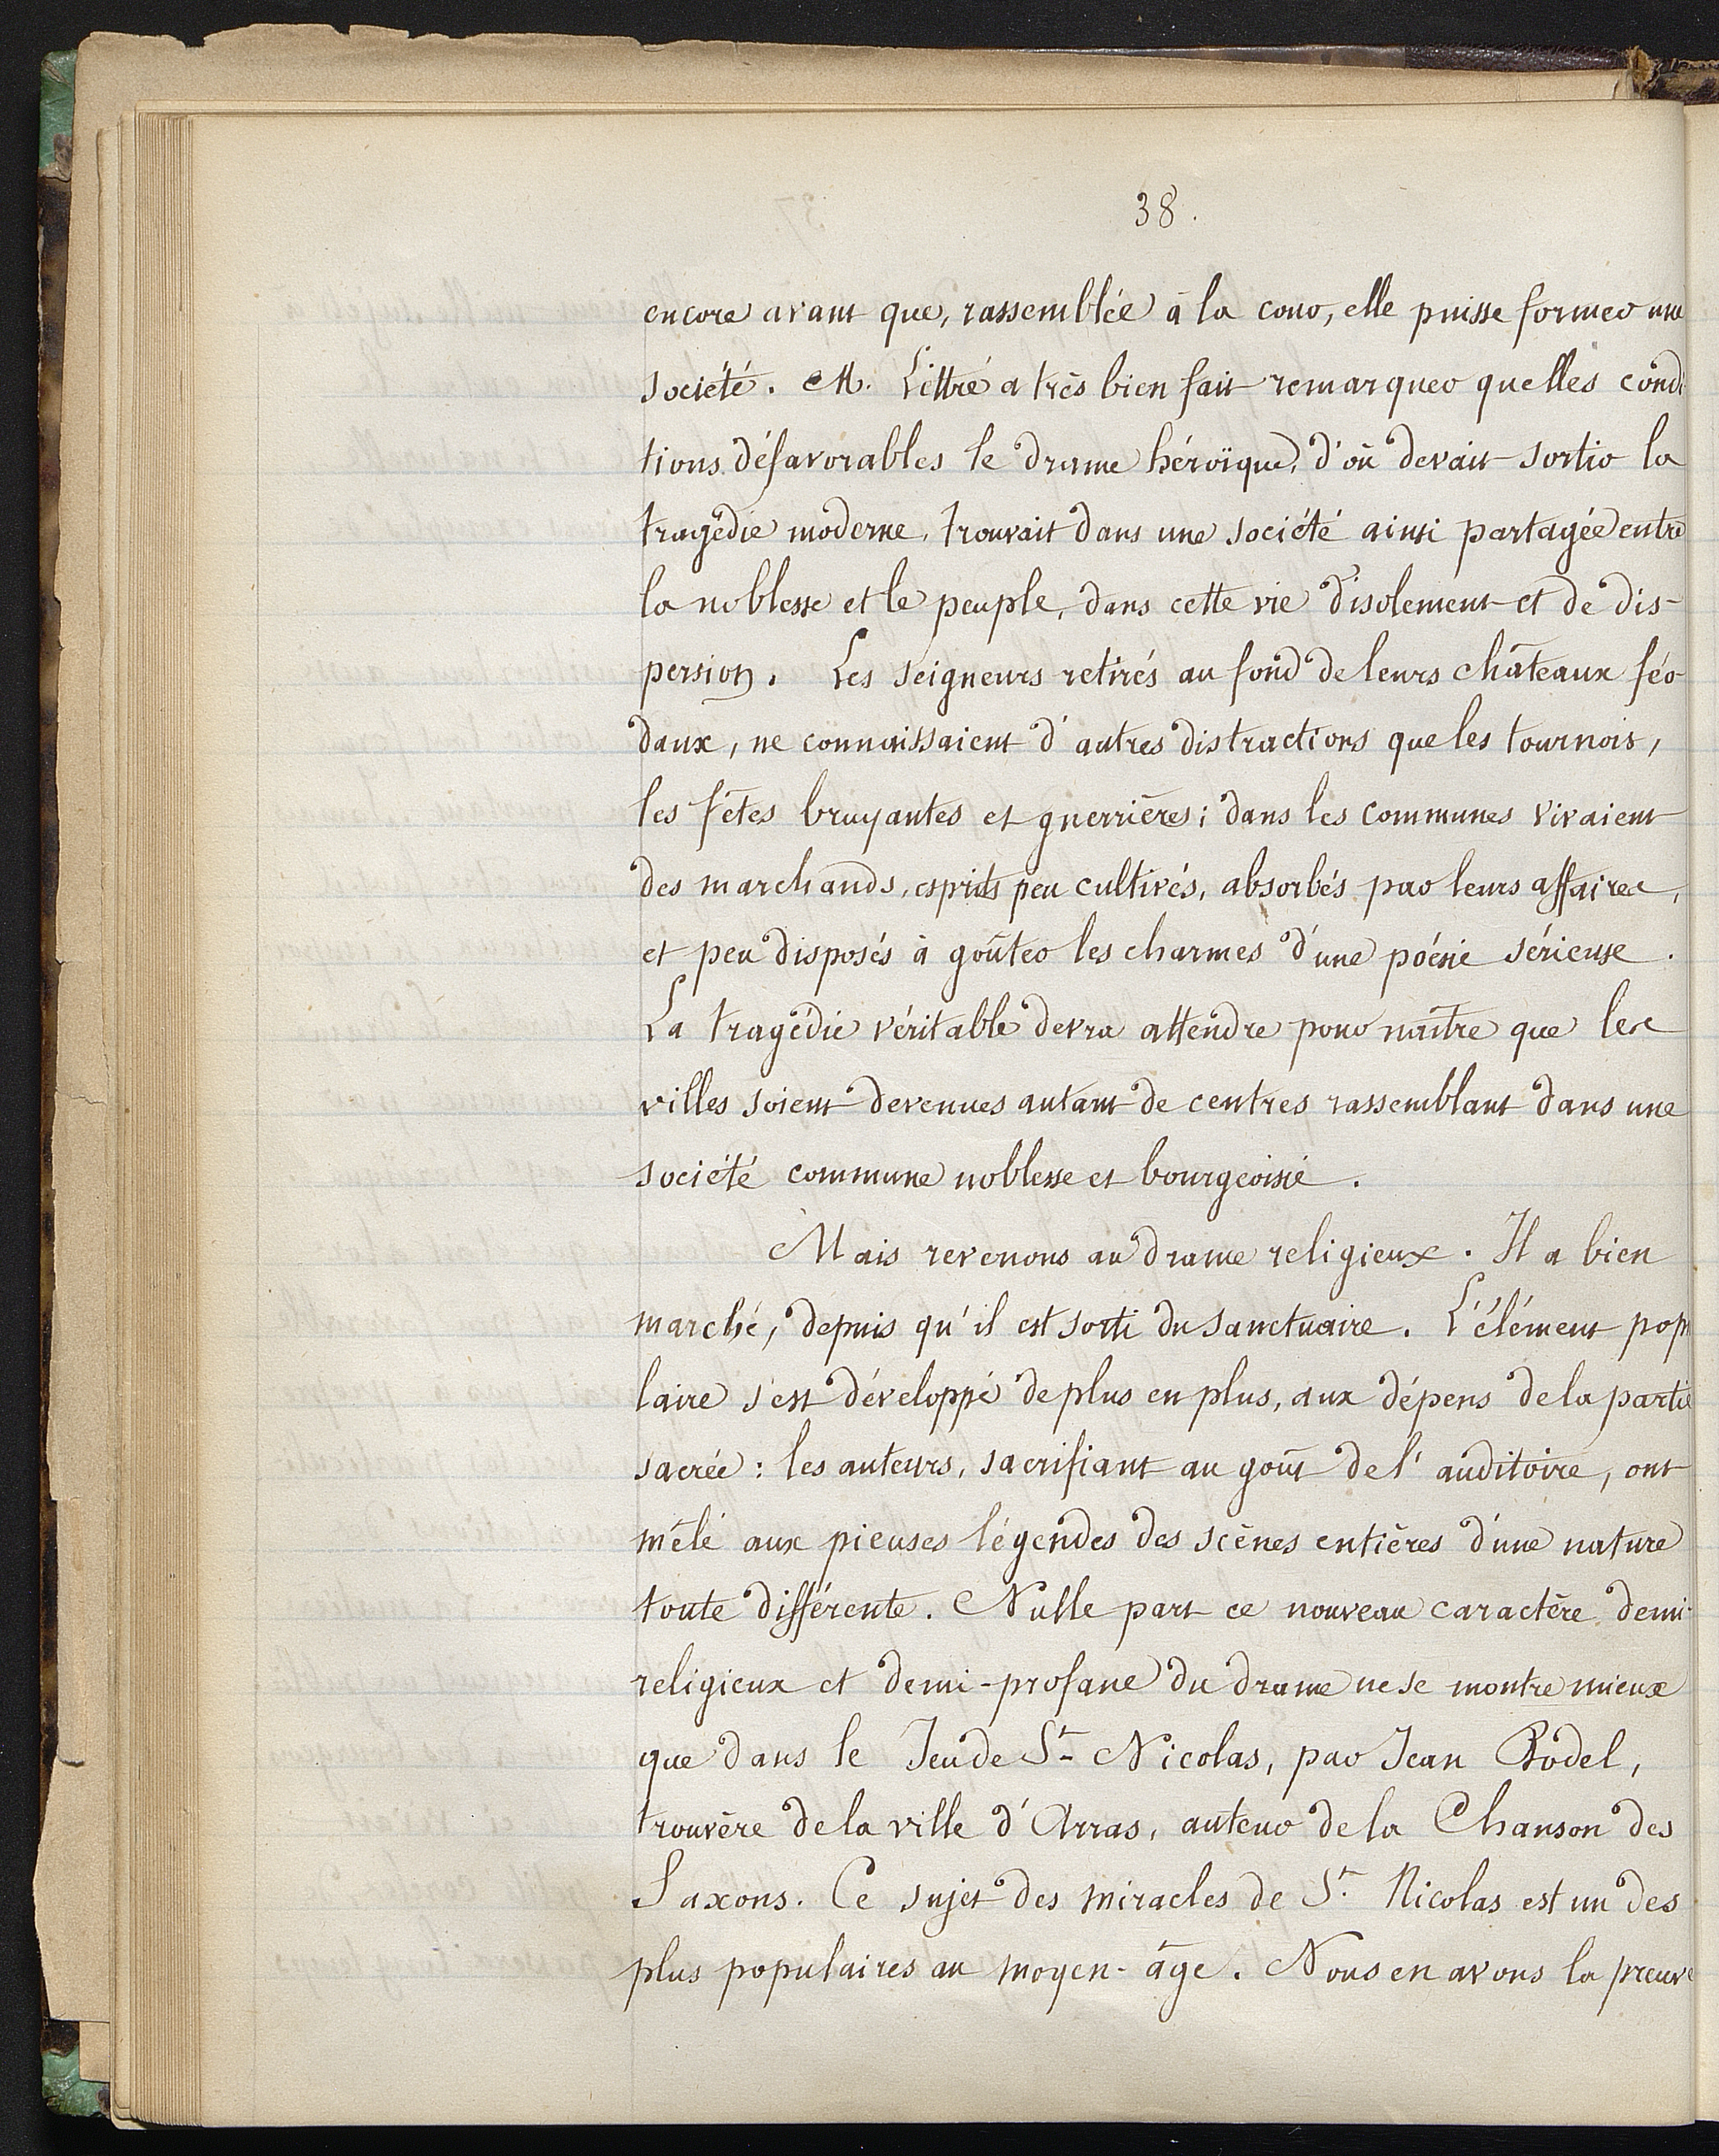 38.
encore avant que, rassemblée à la cour, elle puisse former une
société. M. Littré a très bien fait remarquer quelles condi
tions défavorables le drame héroïque, d'où devait sortir la
tragédie moderne, trouvait dans une société ainsi partagée entre
la noblesse et le peuple, dans cette vie d'isolement et de dis-
persion. Les seigneurs retirés au fond de leurs châteaux féo-
daux, ne connaissaient d'autres distractions que les tournois,
les fêtes bruyantes et guerrières; dans les communes vivaient
des marchands, esprits peu cultivés, absorbés par leurs affaires,
et peu disposés à goûter les charmes d'une poésie sérieuse.
La tragédie véritable devra attendre pour naître que les
villes soient devenues autant de centres rassemblant dans une
société commune noblesse et bourgeoisie.
Mais revenons au drame religieux. Il a bien
marché, depuis qu'il est sorti du sanctuaire. L'élément popu
laire s'est développé de plus en plus, aux dépens de la partie
sacrée : les auteurs, sacrifiant au goût de l'auditoire, ont
mêlé aux pieuses légendes des scènes entières d'une nature
toute différente. Nulle part ce nouveau caractère demi-
religieux et demi-profane du drame ne se montre mieux
que dans le Jeu de St- Nicolas, par Jean Bodel,
trouvère de la ville d'Arras, auteur de la Chanson des
Saxons. Ce sujet des miracles de St. Nicolas est un des
plus populaires au moyen-âge. Nous en avons la preuve